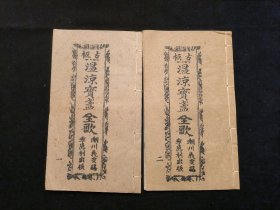 古板
溫涼寶盞全歌
潮州義安路
李萬利出版
一
古板
溫涼寶盞全歌
潮州義安路
李萬利出版
二